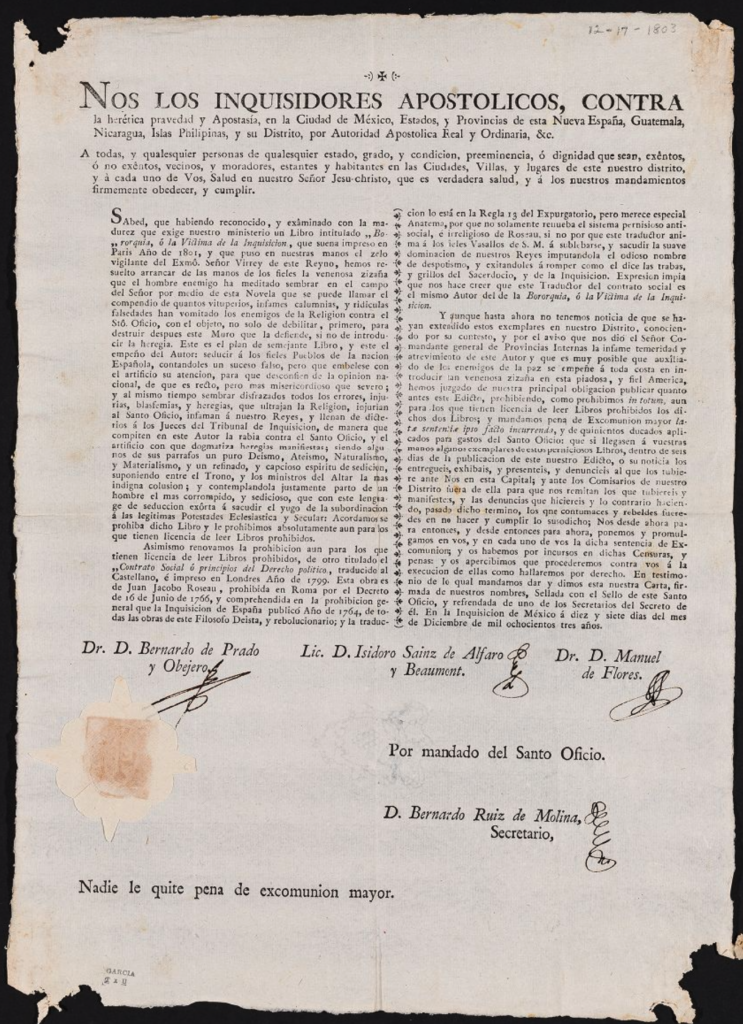 12-17-1803
NOS LOS INQUISIDORES APOSTOLICOS, CONTRA
la herética pravedad y Apostasía, en la Ciudad de México, Estados, y Provincias de esta Nueva España, Guatemala,
Nicaragua, Islas Philipinas, y su Distrito, por Autoridad Apostolica Real y Ordinaria, &c.
A todas, y qualesquier personas de qualesquier estado, grado, y condicion, preeminencia, ó dignidad que sean, exêntos,
ó no exêntos, vecinos, y moradores, estantes y habitantes en las Ciudades, Villas, y lugares de este nuestro distrito,
y á cada uno de Vos, Salud en nuestro Señor Jesu-christo, que es verdadera salud, y á los nuestros mandamientos
firmemente obedecer, y cumplir.
SAbed, que habiendo reconocido, y exâminado con la ma-
durez que exige nuestro ministerio un Libro intitulado „Bo-
„rorquia, ó la Victima de la Inquisicion, que suena impreso en
París Año de 1801, y que puso en nuestras manos el zelo
vigilante del Exmô. Señor Virrey de este Reyno, hemos re-
suelto arrancar de las manos de los fieles la venenosa zizaña
que el hombre enemigo ha meditado sembrar en el campo
del Señor por medio de esta Novela que se puede llamar el
compendio de quantos vituperios, infames calumnias, y ridiculas
falsedades han vomitado los enemigos de la Religion contra el
Stô. Oficio, con el objeto, no solo de debilitar, primero, para
destruir despues este Muro que la defiende, si no de introdu-
cir la heregia. Este es el plan de semejante Libro, y este el
empeño del Autor: seducir á los fieles Pueblos de la nacion
Española, contandoles un suceso falso, pero que embelese con
el artificio su atencion, para que desconfien de la opinion nacio-
nal, de que es recto, pero mas misericordioso que severo;
y al mismo tiempo sembrar disfrazados todos los errores, inju-
rias, blasfemias, y heregias, que ultrajan la Religion, injurian
al Santo Oficio, infaman á nuestro Reyes, y llenan de dicte-
rios á los Jueces del Tribunal de Inquisicion, de manera que
compiten en este Autor la rabia contra el Santo Oficio, y el
artificio con que dogmatiza heregias manifiestas; siendo algu-
nos de sus parrafos un puro Deismo, Ateismo, Naturalismo,
y Materialismo, y un refinado, y capcioso espiritu de sedicion,
suponiendo entre el Trono, y los ministros del Altar la mas
indigna colusion; y contemplandola justamente parto de un
hombre el mas corrompido, y sedicioso, que con este lengua-
ge de seduccion exôrta á sacudir el yugo de la subordinacion
á las legitimas Potestades Eclesiastica y Secular: Acordamos se
prohiba dicho Libro y le prohibimos absolutamente aun para los
que tienen licencia de leer Libros prohibidos.
Asimismo renovamos la prohibicion aun para los que
tienen licencia de leer Libros prohibidos, de otro titulado el
„Contrato Social ó principios del Derecho politico, traducido al
Castellano, é impreso en Londres Año de 1799. Esta obra es
de Juan Jacobo Roseau, prohibida en Roma por el Decreto
de 16 de Junio de 1766, y comprehendida en la prohibicion
general que la Inquisicion de España publicó Año de 1764, de to-
das las obras de este Filosofo Deista, y rebolucionario; y la traduc-
cion lo está en la Regla 13 del Expurgatorio, pero merece especial
Anatema, por que no solamente renueba el sistema pernisioso anti-
social, é irreligioso de Roseau, si no por que este traductor ani-
ma á los fieles Vasallos de S. M. á sublebarse, y sacudir la suave
dominacion de nuestros Reyes imputandola el odioso nombre
de despotismo, y exîtandoles á romper como el dice las trabas,
y grillos del Sacerdocio, y de la Inquisicion. Expresion impia
que nos hace creer que este Traductor del contrato social es
el mismo Autor del de la Bororquia, ó la Victima de la Inqui-
sicion.
Y aunque hasta ahora no tenemos noticia de que se ha-
yan extendido estos exemplares en nuestro Distrito, conocien-
do por su contesto, y por el aviso que nos dió el Señor Co-
mandante general de Provincias Internas la infame temeridad y
atrevimiento de este Autor y que es muy posible que auxîlia-
do de los enemigos de la paz se empeñe á toda costa en in-
troducir tan venenosa zizaña en esta piadosa, y fiel America,
hemos juzgado de nuestra principal obigacion publicar quanto
antes este Edicto, prohibiendo, como prohibimos in totum, aun
para los que tienen licencia de leer Libros prohibidos los di-
chos dos Libros; y mandamos pena de Excomunion mayor la-
tæ sententiæ ipso facto incurrenda, y de quinientos ducados apli-
cados para gastos del Santo Oficio: que si llegasen á vuestras
manos algunos exemplares de estos perniciosos Libros, dentro de seis
dias de la publicacion de este nuestro Edicto, ó su noticia los
entregueis, exhibais, y presenteis, y denuncieis al que los tubie-
re ante Nos en esta Capital; y ante los Comisarios de nuestro
Distrito fuera de ella para que nos remitan los que tubiereis y
manifesteis, y las denuncias que hiciereis y lo contrario hacien-
do, pasado dicho termino, los que contumaces y rebeldes fuere-
des en no hacer y cumplir lo susodicho; Nos desde ahora pa-
ra entonces, y desde entonces para ahora, ponemos y promul-
gamos en vos, y en cada uno de vos la dicha sentencia de Ex-
comunion; y os habemos por incursos en dichas Censuras, y
penas: y os apercibimos que procederemos contra vos á la
execucion de ellas como hallaremos por derecho. En testimo-
nio de lo qual mandamos dar y dimos esta nuestra Carta, fir-
mada de nuestros nombres, Sellada con el Sello de este Santo
Oficio, y refrendada de uno de los Secretarios del Secreto de
él. En la Inquisicion de México á diez y siete dias del mes
de Diciembre de mil ochocientos tres años.
Dr. D. Bernardo de Prado
y Obejero.
Lic. D. Isidoro Sainz de Alfaro
y Beaumont.
Dr. D. Manuel
de Flores.
Por mandado del Santo Oficio.
D. Bernardo Ruiz de Molina,
Secretario,
Nadie le quite pena de excomunion mayor.
GARCIA